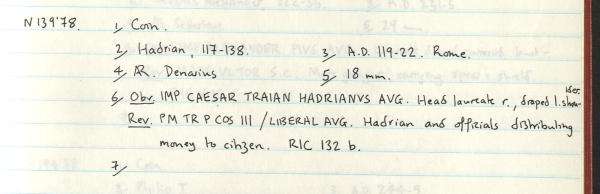 N139'78. 1, Coin.
2, Hadrian, 117-138. 3, A.D. 119-22. Rome.
4, AR. Denarius 5, 18 mm.
6, Obv. IMP CAESAR TRAIAN HADRIANVS AVG. Head laureate r., draped l. shoulder.
Rev. PM TR P COS III / LIBERAL AVG. Hadrian and officials distributing
money to citizen. RIC 132 b.
7,